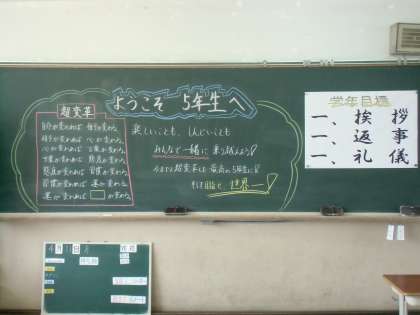 ようこそ 5年生へ
超変革
自分が変われば 相手が変わる
相手が変われば 心が変わる
心が変われば 言葉が変わる
言葉が変われば 態度が変わる
態度が変われば 習慣が変わる
習慣が変われば 運が変わる
運が変われば □が変わる
楽しいことも、しんどいことも
みんなで一緒に 乗り越えよう!
最高の5年生に!
そして目指せ 世界一!
学年目標
一、挨拶
一、返事
一、礼儀